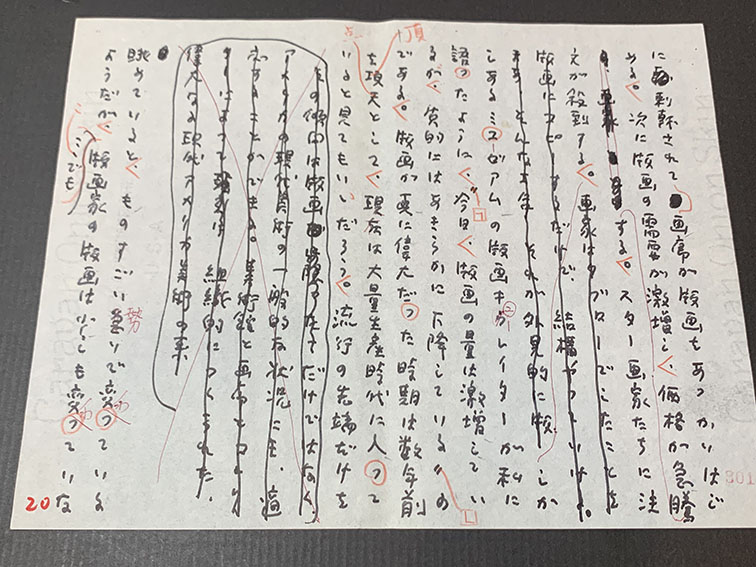 に刺戟されて画商が版画をあつかいはじ
める。次に版画の需要が激増し、価格が急騰
する。スター画家たちに注
文が殺到する。画家はタブローでしたことを
版画にコピーするだけで、結構やっていける。
そんな
しあるミューゼアムの版画キュレイターが私に
語ったように、"今日、版画の量は激増してい
るが、質的にはあきらかに下降している"の
である。版画が真に偉大だった時期は数年前
を頂点として、現在は大量生産時代に入って
いると見てもいいだろう。流行の先端だけを
その傾向は版画に
アメリカの現代美術の一般的な状況にも、適
応することができる。美術館と画商とコレク
ターによって
偉大なる現代アメリカ美術の
眺めていると、ものすごい勢いで変っている
ようだが、版画家の版画は少しも変っていな
頂
点
ここでも
20